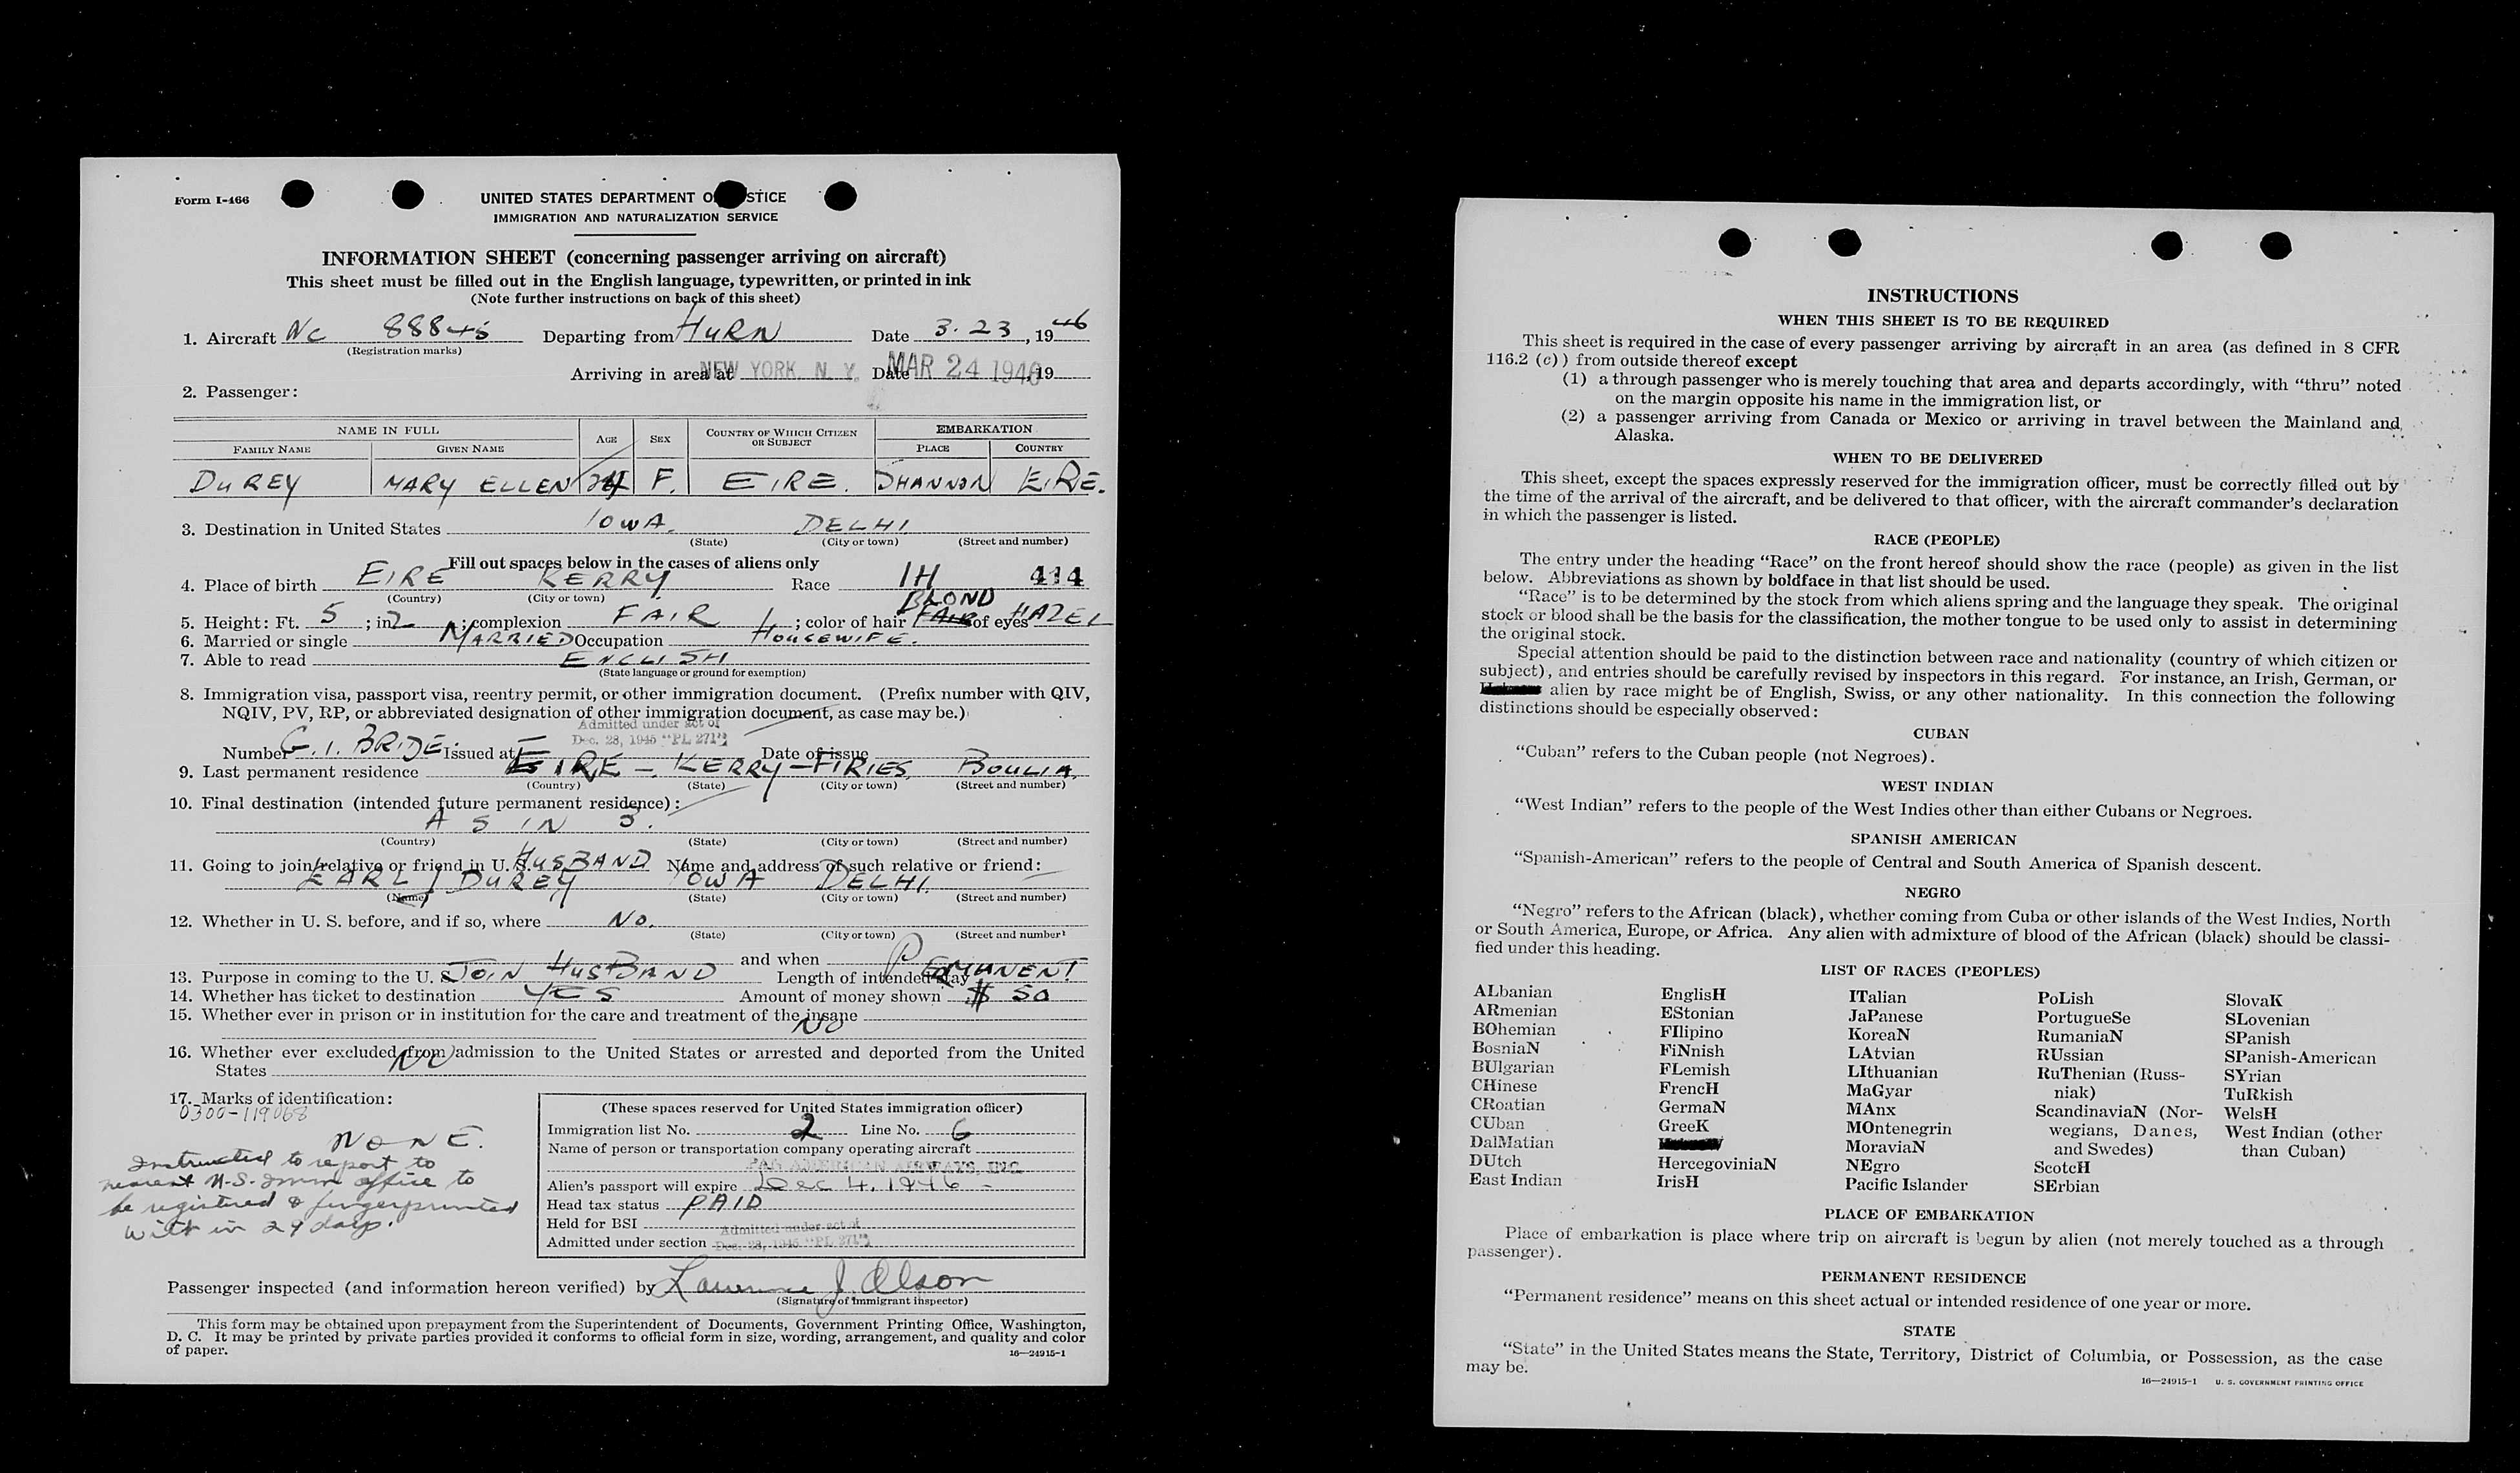 Form I-466
UNITED STATES DEPARTMENT O STICE
IMMIGRATION AND NATURALIZATION SERVICE
INFORMATION SHEET (concerning passenger arriving on aircraft)
This sheet must be filled out in the English language, typewritten, or printed in ink
(Note further instructions on back of this sheet)
1. Aircraft NC 88845 Departing from HURN Date 3.23, 1946
(Registration marks)
Arriving in area at NEW YORK, N. Y. Date MAR 24 1946, 19
2. Passenger:
NAME IN FULL AGE SEX COUNTRY OF WHICH CITIZEN OR SUBJECT EMBARKATION
FAMILY NAME GIVEN NAME PLACE COUNTRY
DUREY MARY ELLEN 24 F. EIRE. SHANNON EIRE.
3. Destination in United States IOWA. DELHI.
(State) (City or town) (Street and number)
Fill out spaces below in the cases of aliens only
4. Place of birth EIRE KERRY Race IH 414
(Country) (City or town)
BLOND
5. Height: Ft. 5 ; in 2 ; complexion FAIR ; color of hair FAIR of eyes HAZEL
6. Married or single MARRIED Occupation HOUSEWIFE.
7. Able to read ENGLISH
(State language or ground for exemption)
8. Immigration visa, passport visa, reentry permit, or other immigration document. (Prefix number with QIV,
NQIV, PV, RP, or abbreviated designation of other immigration document, as case may be.)
Admitted under act of
Dec. 28, 1945 "PL 271"
Number G.I. BRIDE. Issued at Date of issue
9. Last permanent residence EIRE - KERRY - FIRIES, BOULIA.
(Country) (State) (City or town) (Street and number)
10. Final destination (intended future permanent residence):
AS IN 3.
(Country) (State) (City or town) (Street and number)
11. Going to join relative or friend in U. S. HUSBAND Name and address of such relative or friend:
EARL J DUREY IOWA DELHI.
(Name) (State) (City or town) (Street and number)
12. Whether in U. S. before, and if so, where NO.
(State) (City or town) (Street and number)
and when
13. Purpose in coming to the U. S. JOIN HUSBAND Length of intended stay PERMANENT
14. Whether has ticket to destination YES Amount of money shown $ 50
15. Whether ever in prison or in institution for the care and treatment of the insane
NO
16. Whether ever excluded from admission to the United States or arrested and deported from the United
States NO
17. Marks of identification:
0300-119068
NONE.
Instructed to report to
nearest U.S. Imm office to
be registered & fingerprinted
with in 29 days.
(These spaces reserved for United States immigration officer)
Immigration list No. 2 Line No. 6
Name of person or transportation company operating aircraft
PAN AMERICAN AIRWAYS, INC
Alien's passport will expire Dec 4, 1946 -
Head tax status PAID
Held for BSI
Admitted under section Admitted under act of
Dec. 28, 1945 "PL 271"
Passenger inspected (and information hereon verified) by Lawrence J. Olson
(Signature of immigrant inspector)
This form may be obtained upon prepayment from the Superintendent of Documents, Government Printing Office, Washington,
D. C. It may be printed by private parties provided it conforms to official form in size, wording, arrangement, and quality and color
of paper.
16—24915-1
INSTRUCTIONS
WHEN THIS SHEET IS TO BE REQUIRED
This sheet is required in the case of every passenger arriving by aircraft in an area (as defined in 8 CFR
116.2 (c)) from outside thereof except
(1) a through passenger who is merely touching that area and departs accordingly, with "thru" noted
on the margin opposite his name in the immigration list, or
(2) a passenger arriving from Canada or Mexico or arriving in travel between the Mainland and
Alaska.
WHEN TO BE DELIVERED
This sheet, except the spaces expressly reserved for the immigration officer, must be correctly filled out by
the time of the arrival of the aircraft, and be delivered to that officer, with the aircraft commander's declaration
in which the passenger is listed.
RACE (PEOPLE)
The entry under the heading "Race" on the front hereof should show the race (people) as given in the list
below. Abbreviations as shown by boldface in that list should be used.
"Race" is to be determined by the stock from which aliens spring and the language they speak. The original
stock or blood shall be the basis for the classification, the mother tongue to be used only to assist in determining
the original stock.
Special attention should be paid to the distinction between race and nationality (country of which citizen or
subject), and entries should be carefully revised by inspectors in this regard. For instance, an Irish, German, or
alien by race might be of English, Swiss, or any other nationality. In this connection the following
distinctions should be especially observed:
CUBAN
"Cuban" refers to the Cuban people (not Negroes).
WEST INDIAN
"West Indian" refers to the people of the West Indies other than either Cubans or Negroes.
SPANISH AMERICAN
"Spanish-American" refers to the people of Central and South America of Spanish descent.
NEGRO
"Negro" refers to the African (black), whether coming from Cuba or other islands of the West Indies, North
or South America, Europe, or Africa. Any alien with admixture of blood of the African (black) should be classi-
fied under this heading.
LIST OF RACES (PEOPLES)
ALbanian EnglisH ITalian PoLish SlovaK
ARmenian EStonian JaPanese PortugueSe SLovenian
BOhemian FIlipino KoreaN RumaniaN SPanish
BosniaN FiNnish LAtvian RUssian SPanish-American
BUlgarian FLemish LIthuanian RuThenian (Russ- SYrian
CHinese FrencH MaGyar niak) TuRkish
CRoatian GermaN MAnx ScandinaviaN (Nor- WelsH
CUban GreeK MOntenegrin wegians, Danes, West Indian (other
DalMatian MoraviaN and Swedes) than Cuban)
DUtch HercegoviniaN NEgro ScotcH
East Indian IrisH Pacific Islander SErbian
PLACE OF EMBARKATION
Place of embarkation is place where trip on aircraft is begun by alien (not merely touched as a through
passenger).
PERMANENT RESIDENCE
"Permanent residence" means on this sheet actual or intended residence of one year or more.
STATE
"State" in the United States means the State, Territory, District of Columbia, or Possession, as the case
may be.
16—24915-1 U. S. GOVERNMENT PRINTING OFFICE